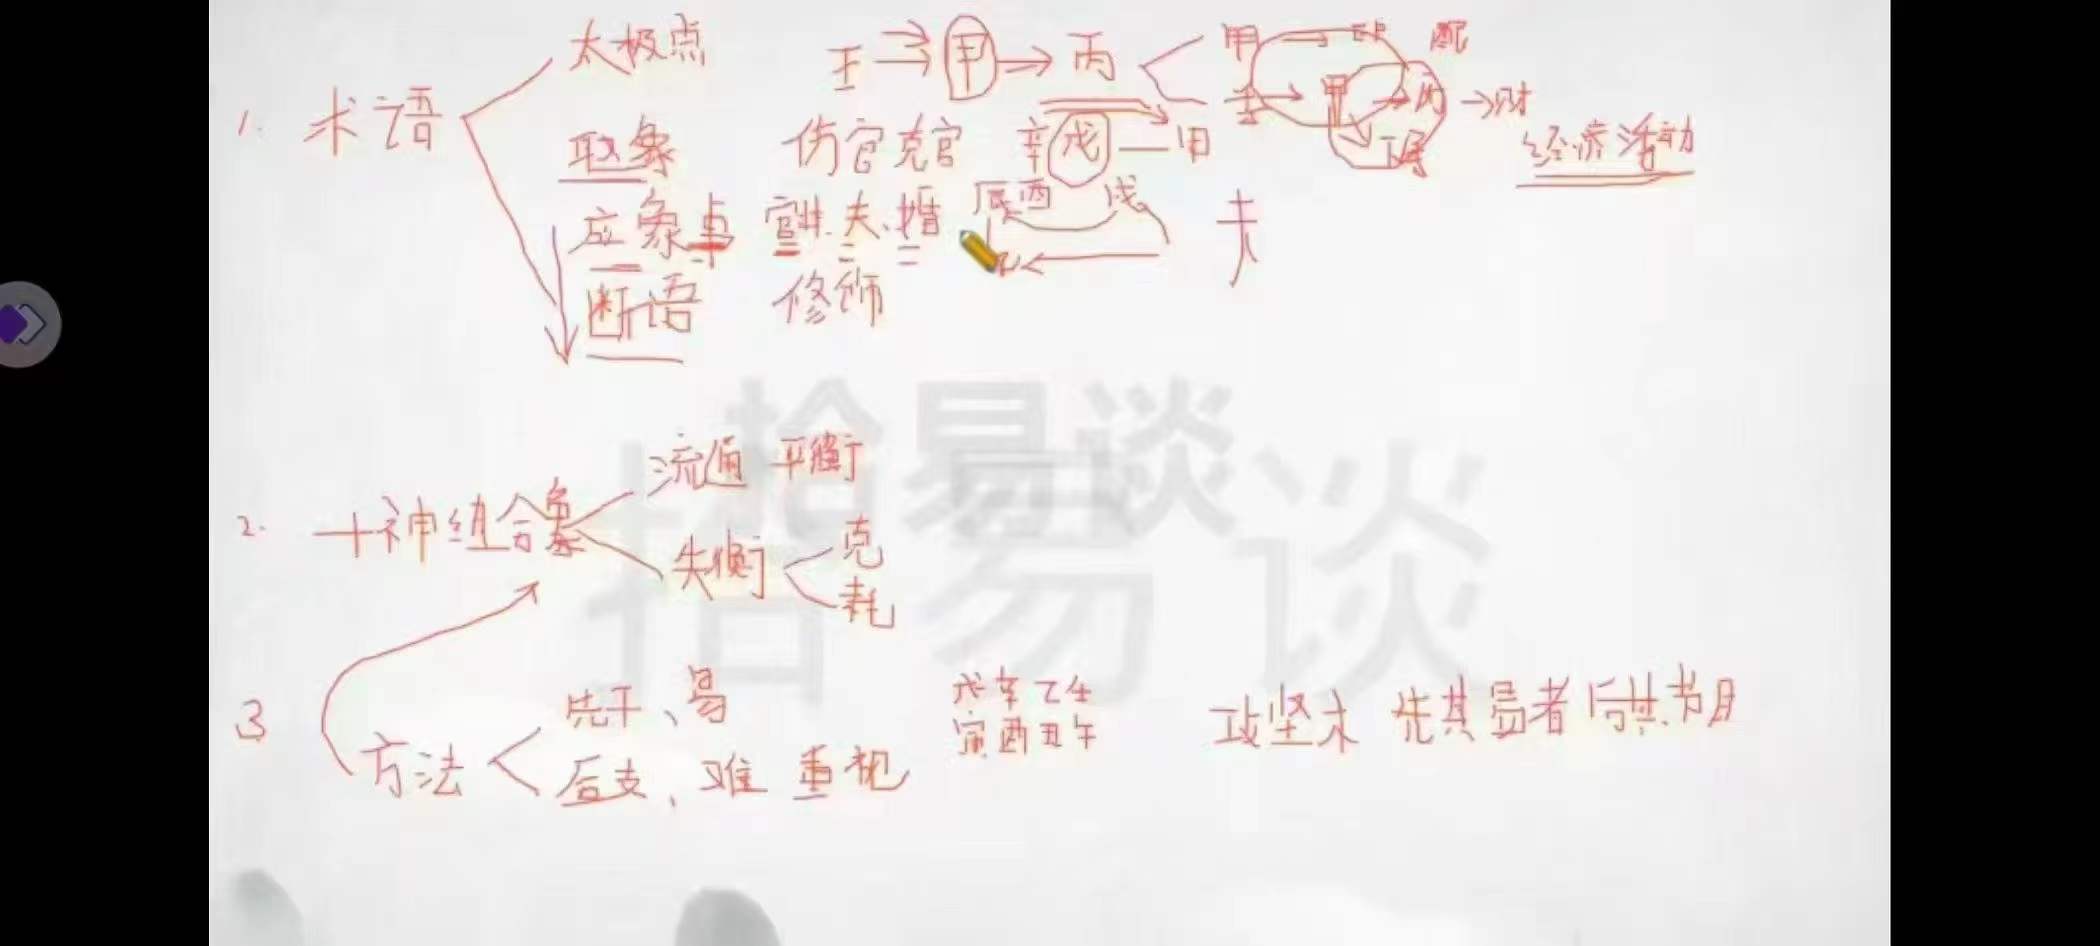 1. 术语
太极点 壬 → 甲 → 丙 甲 → 配
壬 → 甲 → 丙 → 财
取象 伤官克官 辛 戊 — 甲 经济活动
应象与 官非.夫.婚 辰酉 戌 夫
断语 修饰
拾易谈
拾易谈
2. 十神组合象 流通 平衡
失衡 克
耗
3 方法 先干、易 戊辛乙壬 攻坚木 先其易者 后其节目
后支、难 重视 寅酉丑午